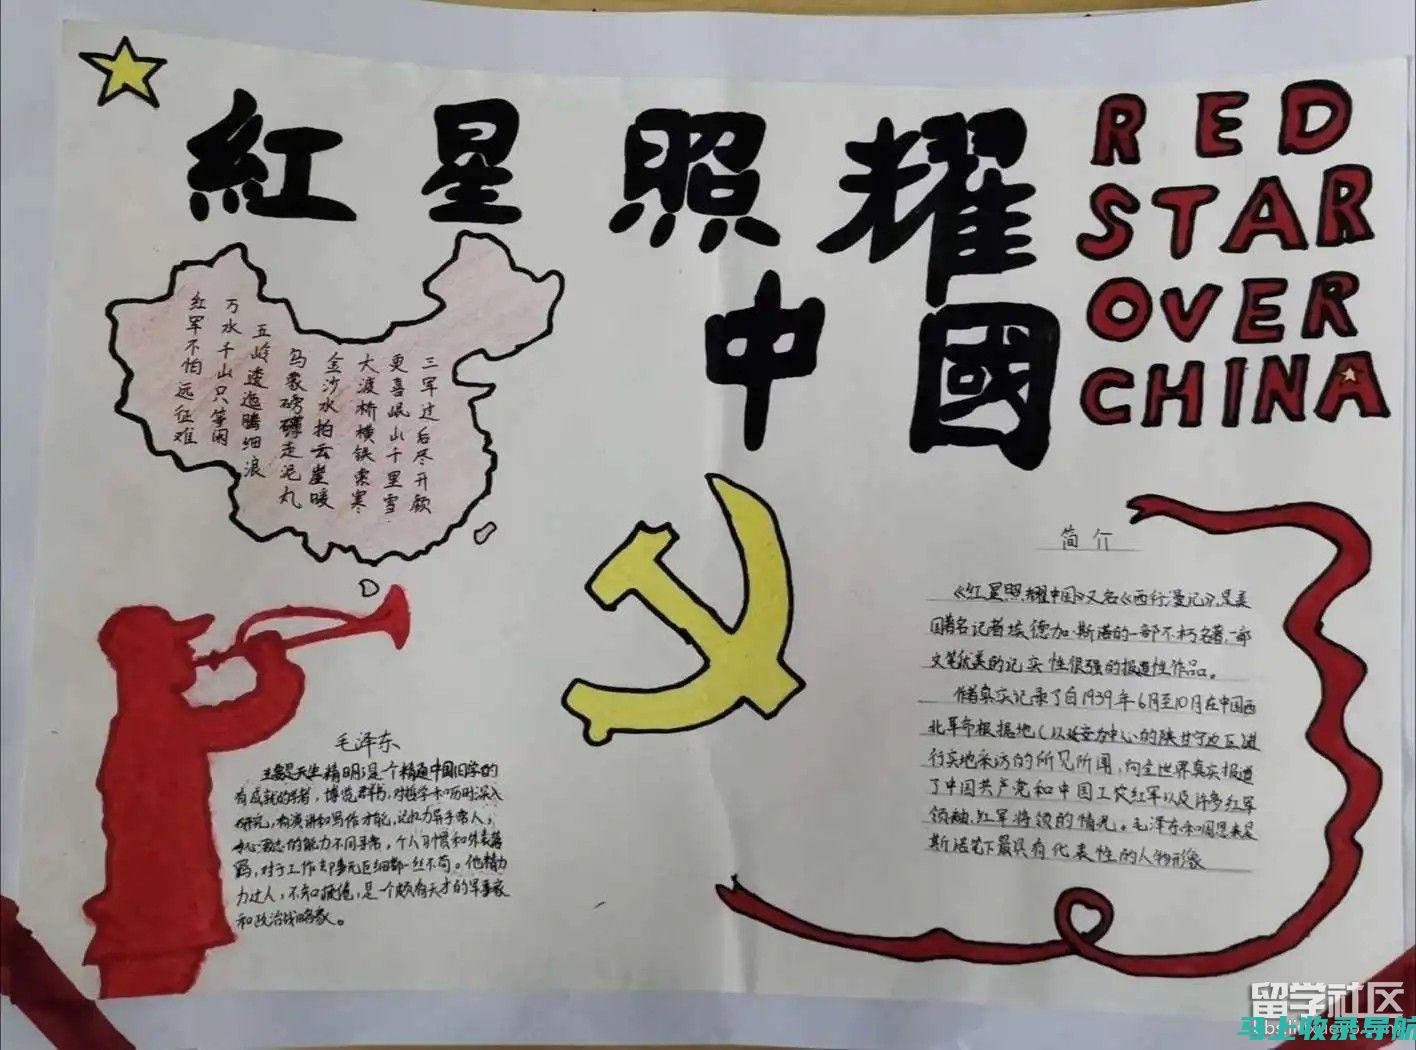 紅星照耀
中國
RED
STAR
OVER
CHINA
红军不怕远征难
万水千山只等闲
五岭逶迤腾细浪
乌蒙磅礴走泥丸
金沙水拍云崖暖
大渡桥横铁索寒
更喜岷山千里雪
三军过后尽开颜
简介
《红星照耀中国》又名《西行漫记》,是美
国著名记者埃德加·斯诺的一部不朽名著,一部
文笔优美的记实性很强的报道性作品。
作者真实记录了自1939年6月至10月在中国西
北革命根据地(以延安为中心的陕甘宁边区)进
行实地采访的所见所闻,向全世界真实报道
了中国共产党和中国工农红军以及许多红军
领袖、红军将领的情况。毛泽东和周恩来是
斯诺笔下最具有代表性的人物形象
毛泽东
主要是天生精明,是一个精通中国旧学的
有成就的学者,博览群书,对哲学和历史深入
研究,有演讲和写作才能,记忆力异乎常人,
专心致志的能力不同寻常,个人习惯和外表落
拓,对于工作却事无巨细都一丝不苟。他精力
过人,不知疲倦,是一个颇有天才的军事家
和政治战略家。
留学社区
马上收录导航